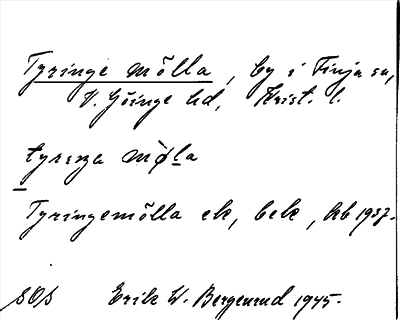 Tyringe mölla, by i Finja sn,
V. Göinge hd, Krist. l.
tyrıŋa mø̀la
Tyringemölla ek, bek, kb 1937.
SOS Erik W. Bergenrud 1945.